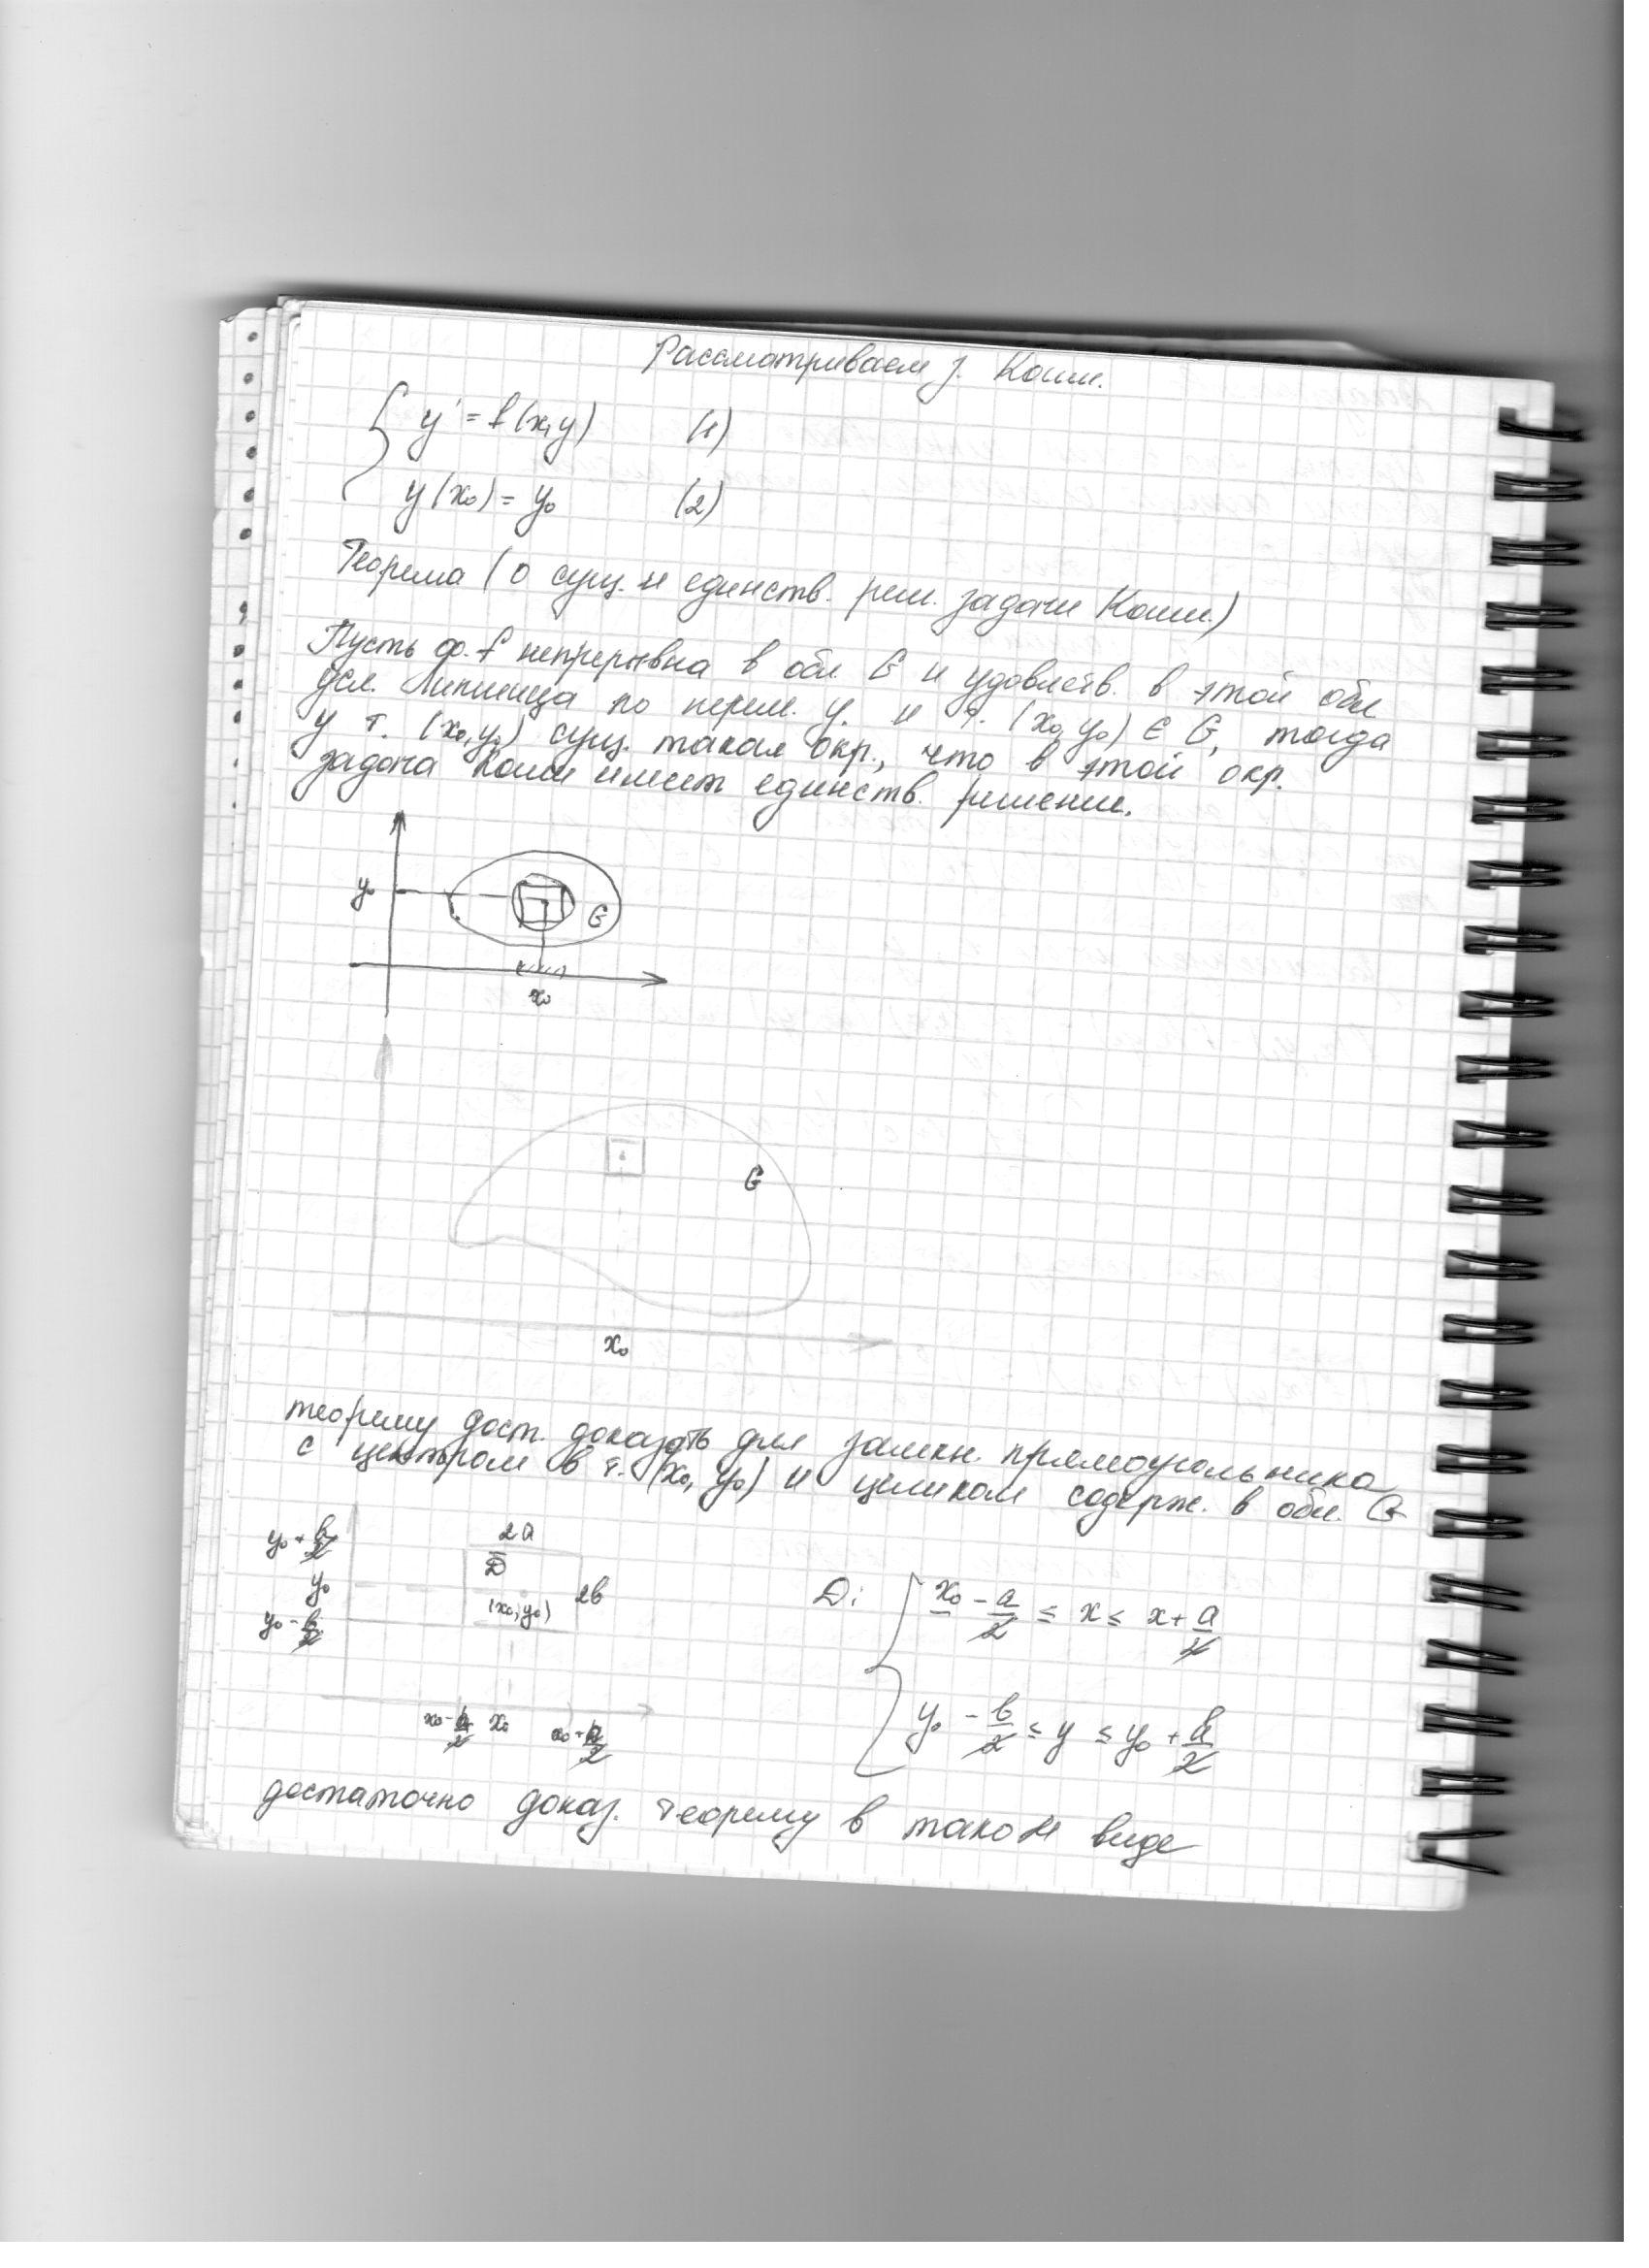 Рассматриваем з. Коши.
y' = f(x,y) (1)
y(x₀) = y₀ (2)
Теорема (о сущ. и единств. реш. задачи Коши)
Пусть ф. f непрерывна в обл. G и удовлетв. в этой обл
усл. Липшица по перем. y. и т. (x₀, y₀) ∈ G, тогда
у т. (x₀, y₀) сущ. такая окр., что в этой окр.
задача Коши имеет единств. решение.
y₀
G
x₀
G
x₀
теорему дост. доказать для замкн. прямоугольника
с центром в т. (x₀, y₀) и целиком содерж. в обл. G
y₀ + b/2
y₀
y₀ - b/2
2a
D
(x₀, y₀)
2b
x₀ - a/2 x₀ x₀ + a/2
D: x₀ - a/2 ≤ x ≤ x + a/2
y₀ - b/2 ≤ y ≤ y₀ + b/2
достаточно доказ. теорему в таком виде